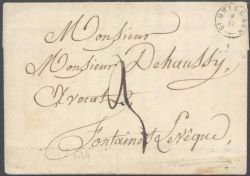 Monsieur
Monsieur Dehaussy,
Avocat
3
Fontaine l'Evêque,